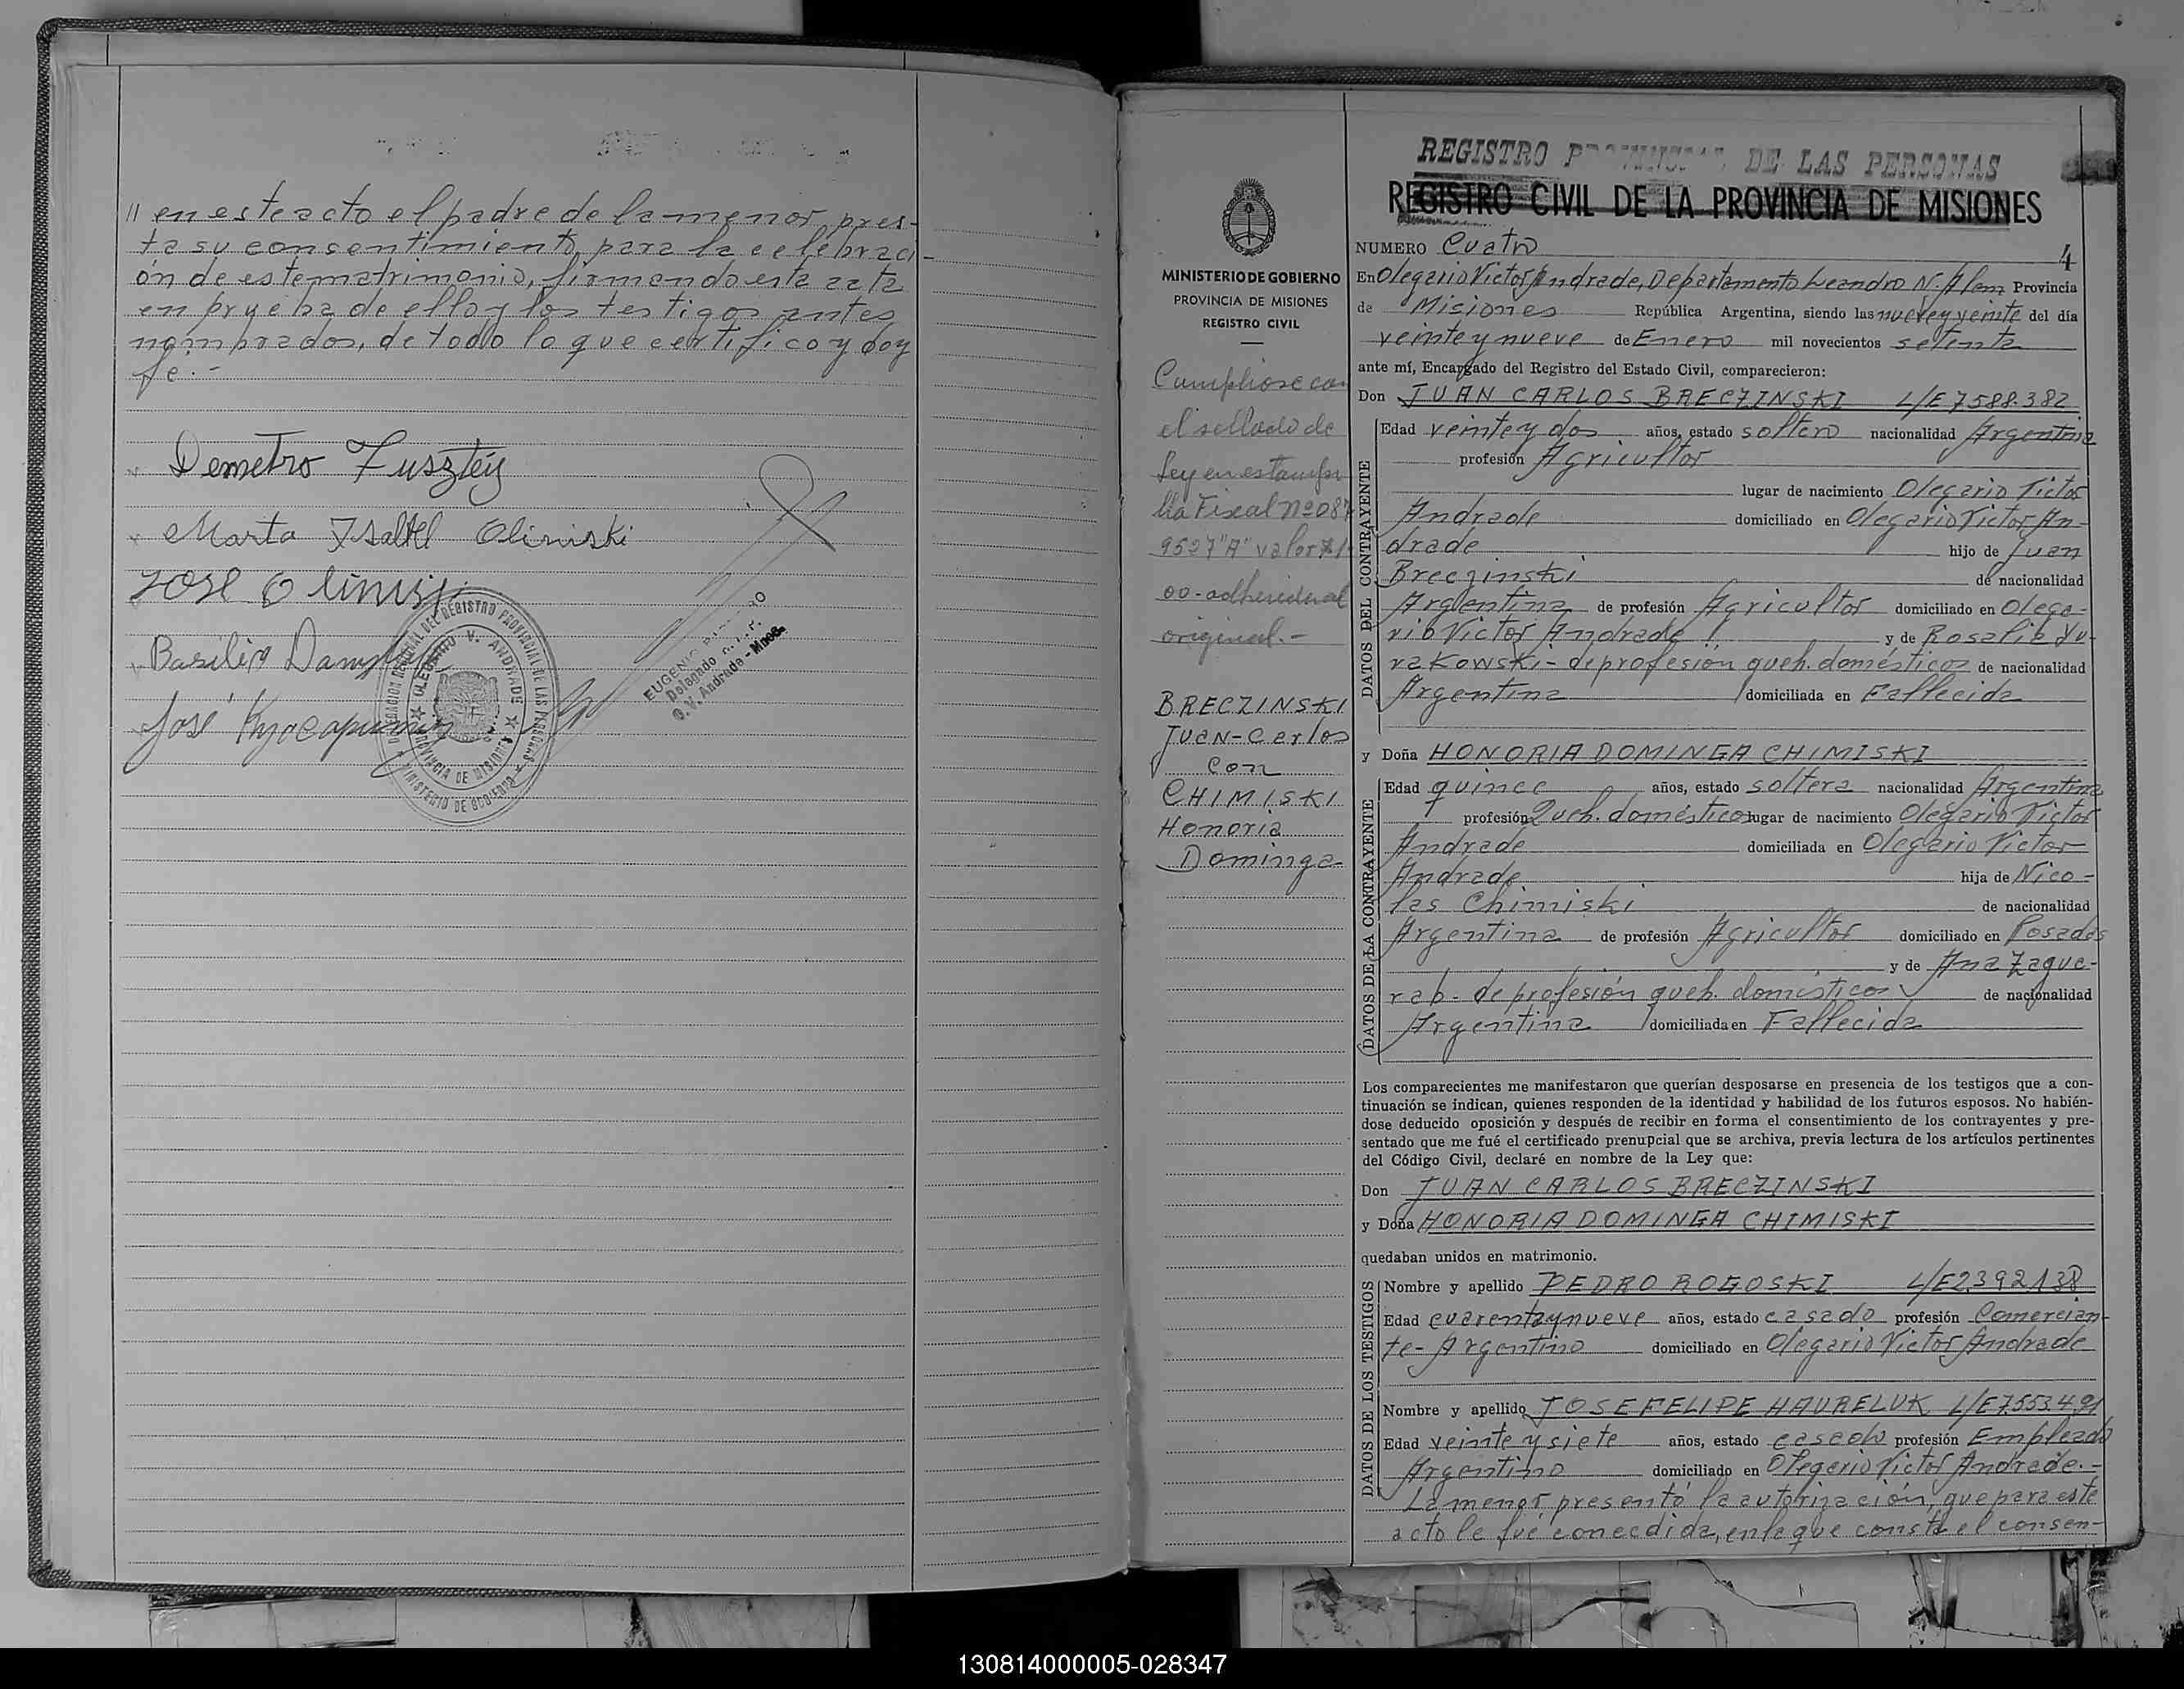 // en este acto el padre de la menor, pres-
ta su consentimiento para la celebraci-
ón de este matrimonio, firmando esta acta
en prueba de ello y los testigos antes
nombrados, de todo lo que certifico y doy
fe.-
Demetro Fusztey
Marta Isabel Oliniski
José Olinis
Basilio
José
DELEGACION REGISTRO PROVINCIAL DE LAS PERSONAS
OLEGARIO V. ANDRADE
PROVINCIA DE MISIONES
MINISTERIO DE GOBIERNO
EUGENIO
Delegado
O. V. Andrade - Mnes.
MINISTERIO DE GOBIERNO
PROVINCIA DE MISIONES
REGISTRO CIVIL
Cumpliose con
el sellado de
Ley en estampi
lla Fiscal Nº 087
9527 "A" valor $ 1-
00- adherida al
original.-
BRECZINSKI
Juan-Carlos
con
CHIMISKI
Honoria
Dominga-
REGISTRO PROVINCIAL DE LAS PERSONAS
REGISTRO CIVIL DE LA PROVINCIA DE MISIONES
NUMERO Cuatro 4
En Olegario Victor Andrade, Departamento Leandro N. Alem Provincia
de Misiones República Argentina, siendo las nueve y veinte del día
veinte y nueve de Enero mil novecientos setenta
ante mí, Encargado del Registro del Estado Civil, comparecieron:
Don JUAN CARLOS BRECZINSKI L/E 7588.382
DATOS DEL CONTRAYENTE
Edad veinte y dos años, estado soltero nacionalidad Argentina
profesión Agricultor
lugar de nacimiento Olegario Victor
Andrade domiciliado en Olegario Victor An-
drade hijo de Juan
Breczinski de nacionalidad
Argentina de profesión Agricultor domiciliado en Olega-
rio Victor Andrade y de Rosalia Yu-
rakowski - de profesión queh. domésticos de nacionalidad
Argentina domiciliada en Fallecida
y Doña HONORIA DOMINGA CHIMISKI
DATOS DE LA CONTRAYENTE
Edad quince años, estado soltera nacionalidad Argentina
profesión Queh. domésticos lugar de nacimiento Olegario Victor
Andrade domiciliada en Olegario Victor
Andrade hija de Nico-
las Chimiski de nacionalidad
Argentina de profesión Agricultor domiciliado en Posadas
y de Ana Zague-
rab- de profesión queh. domésticos de nacionalidad
Argentina domiciliada en Fallecida
Los comparecientes me manifestaron que querían desposarse en presencia de los testigos que a con-
tinuación se indican, quienes responden de la identidad y habilidad de los futuros esposos. No habién-
dose deducido oposición y después de recibir en forma el consentimiento de los contrayentes y pre-
sentado que me fué el certificado prenupcial que se archiva, previa lectura de los artículos pertinentes
del Código Civil, declaré en nombre de la Ley que:
Don JUAN CARLOS BRECZINSKI
y Doña HONORIA DOMINGA CHIMISKI
quedaban unidos en matrimonio.
DATOS DE LOS TESTIGOS
Nombre y apellido PEDRO ROGOSKI L/E 2.392.138
Edad cuarenta y nueve años, estado casado profesión Comercian-
te- Argentino domiciliado en Olegario Victor Andrade
Nombre y apellido JOSE FELIPE HAURELUK L/E 7.553.491
Edad veinte y siete años, estado casado profesión Empleado
Argentino domiciliado en Olegario Victor Andrade.-
La menor presentó la autorización, que para este
acto le fué concedida, en la que consta el consen-
130814000005-028347